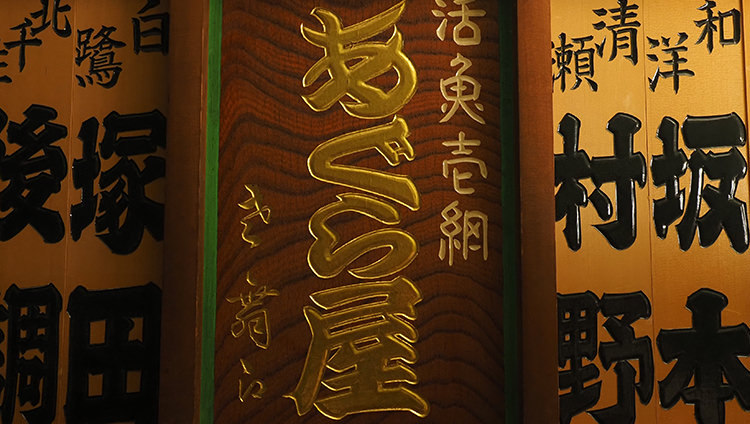 和洋
坂本
清瀬
村野
活魚壱網
あぐら屋
白鷺
塚田
北千